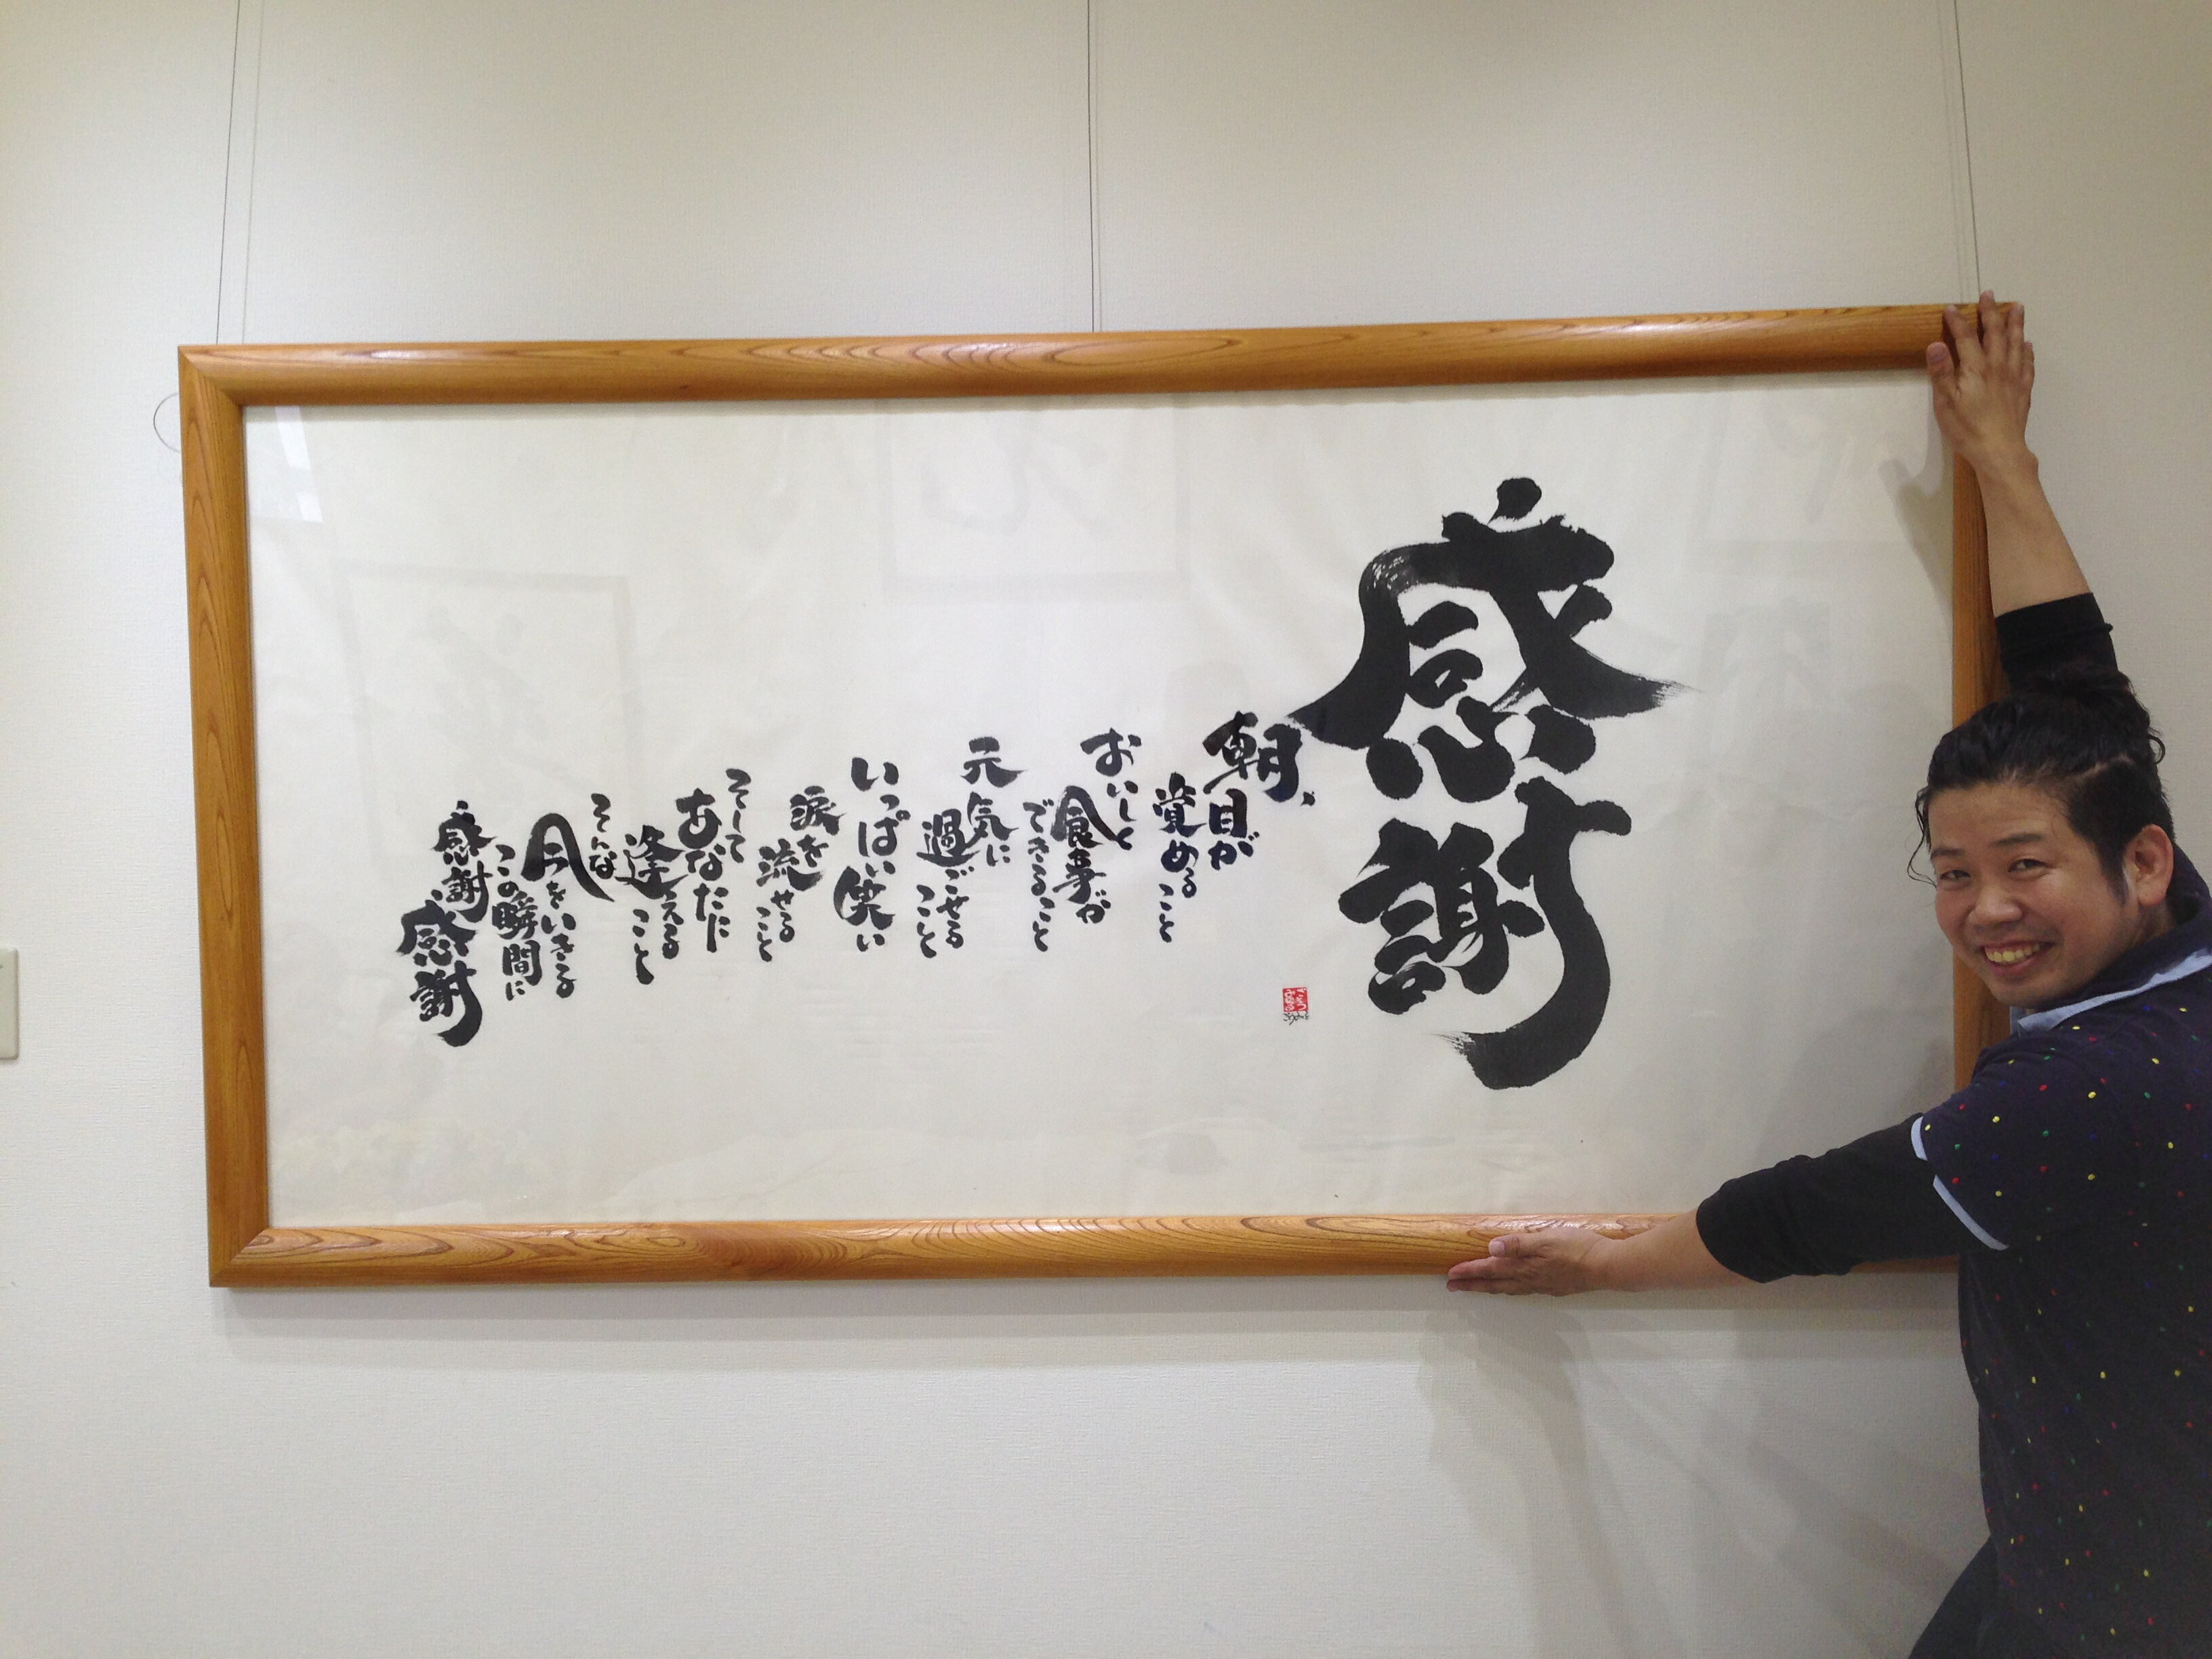 感謝
朝、
目が
覚める
こと
おいしく
食事が
できること
元気に
過ごせる
こと
いっぱい笑い
涙を
流せる
こと
そして
あなたに
逢える
こと
そんな
今をいきる
この瞬間に
感謝
感謝